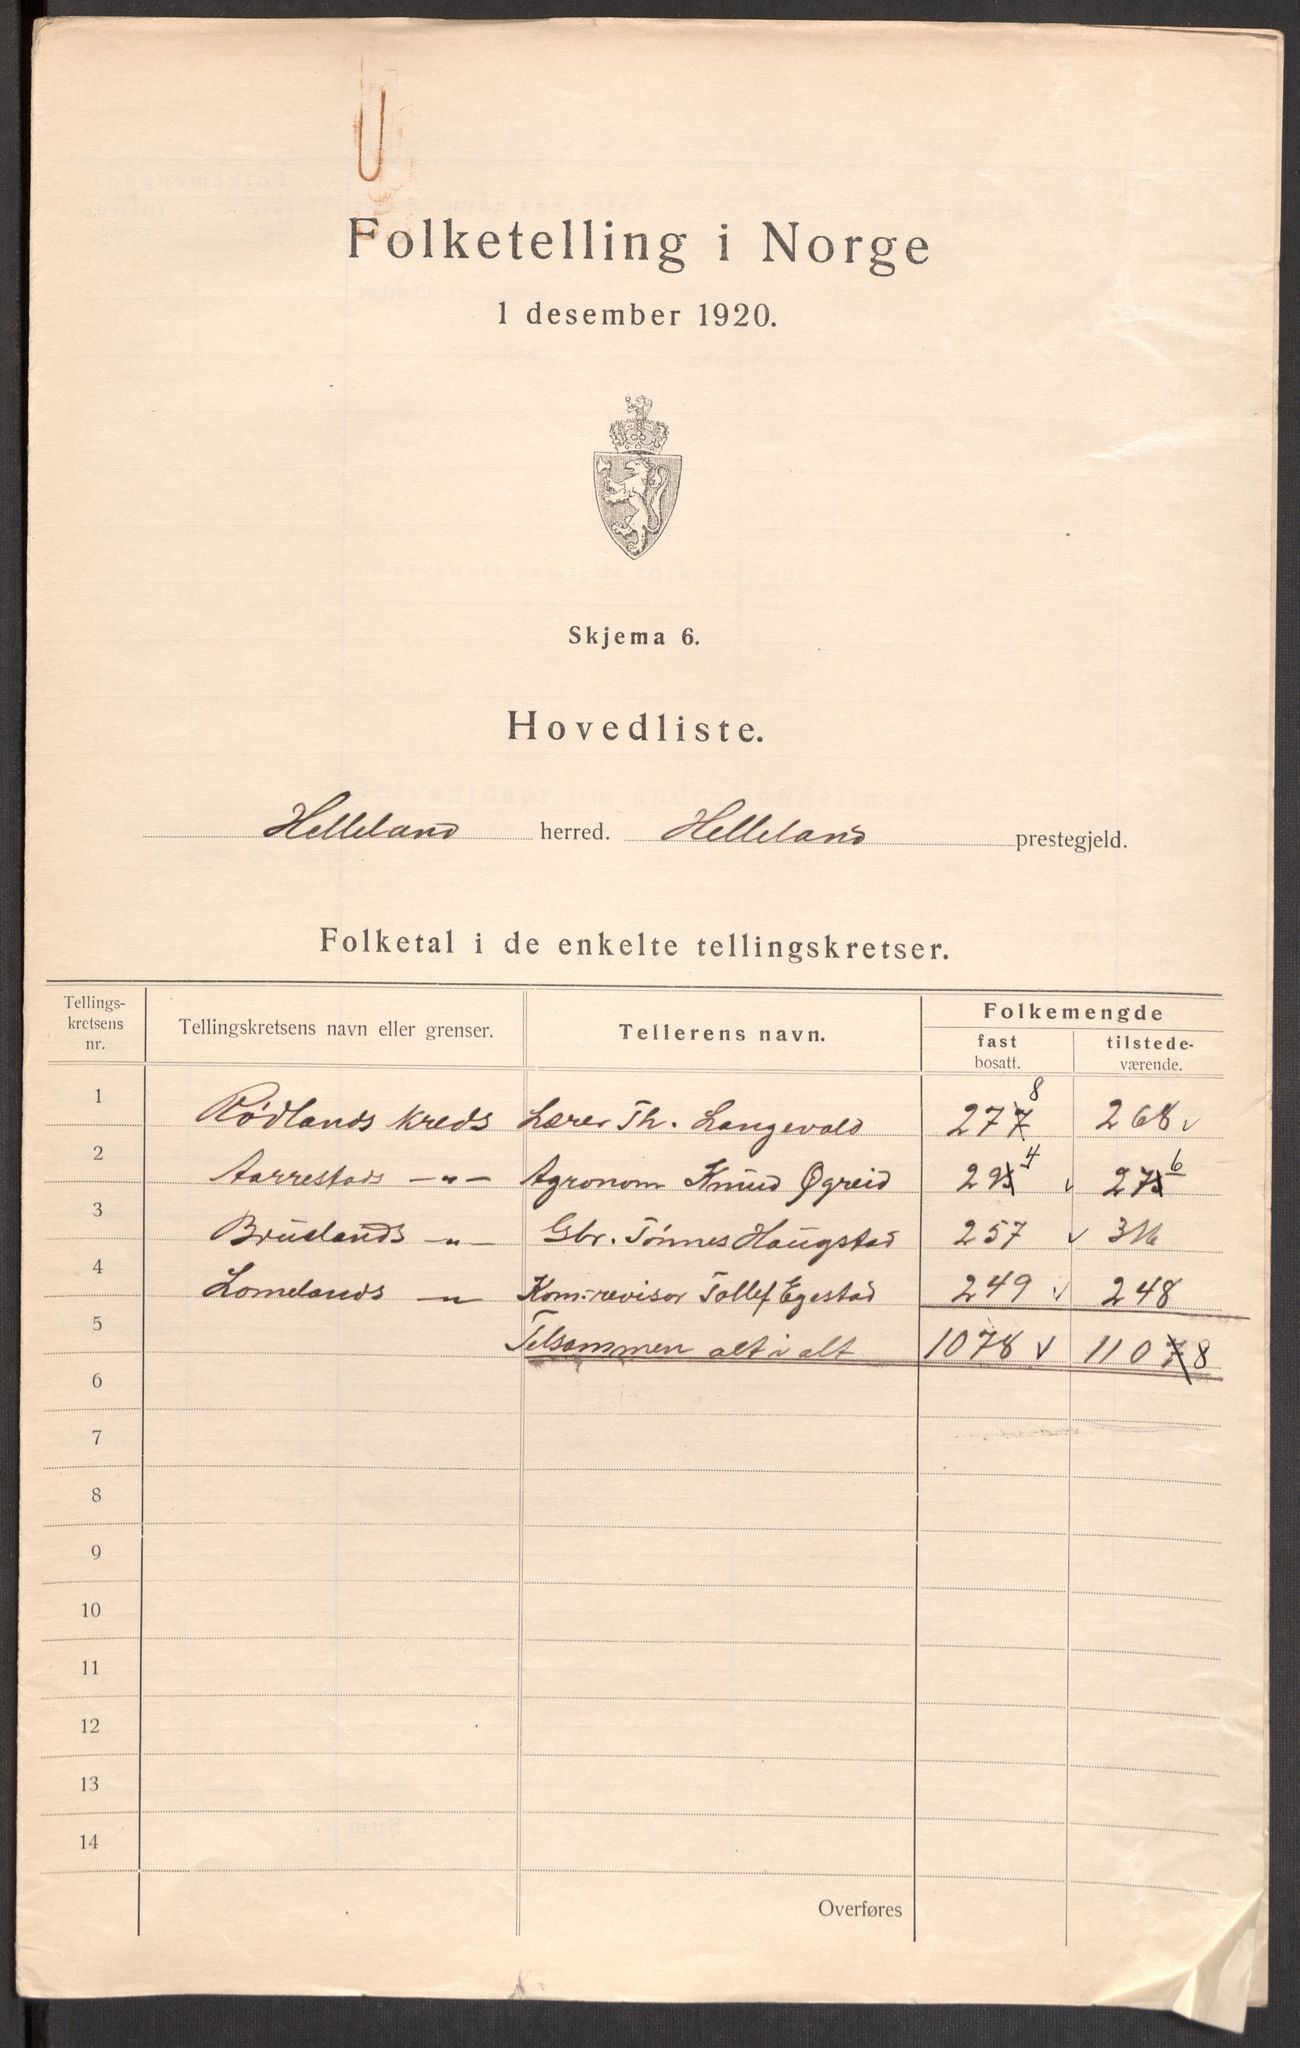 Folketelling i Norge
1 desember 1920.
Skjema 6.
Hovedliste.
Helleland herred. Helleland prestegjeld.
Folketal i de enkelte tellingskretser.
Tellings-
kretsens
nr.
Tellingskretsens navn eller grenser.
Tellerens navn.
Folkemengde
fast
bosatt.
tilstede-
værende.
1 Rødlands kreds Lærer Th. Langevald 277 8 268 ✓
2 Aarrestads -"- Agronom Knud Øgreid 295 4 ✓ 275 6
3 Bruslands -"- Gbr. Tønnes Haugstad 257 ✓ 316
4 Lomelands -"- Kom.revisor Tollef Egestad 249 ✓ 248
5 Tilsammen alt i alt 1078 ✓ 1107 8
6
7
8
9
10
11
12
13
14
Overføres